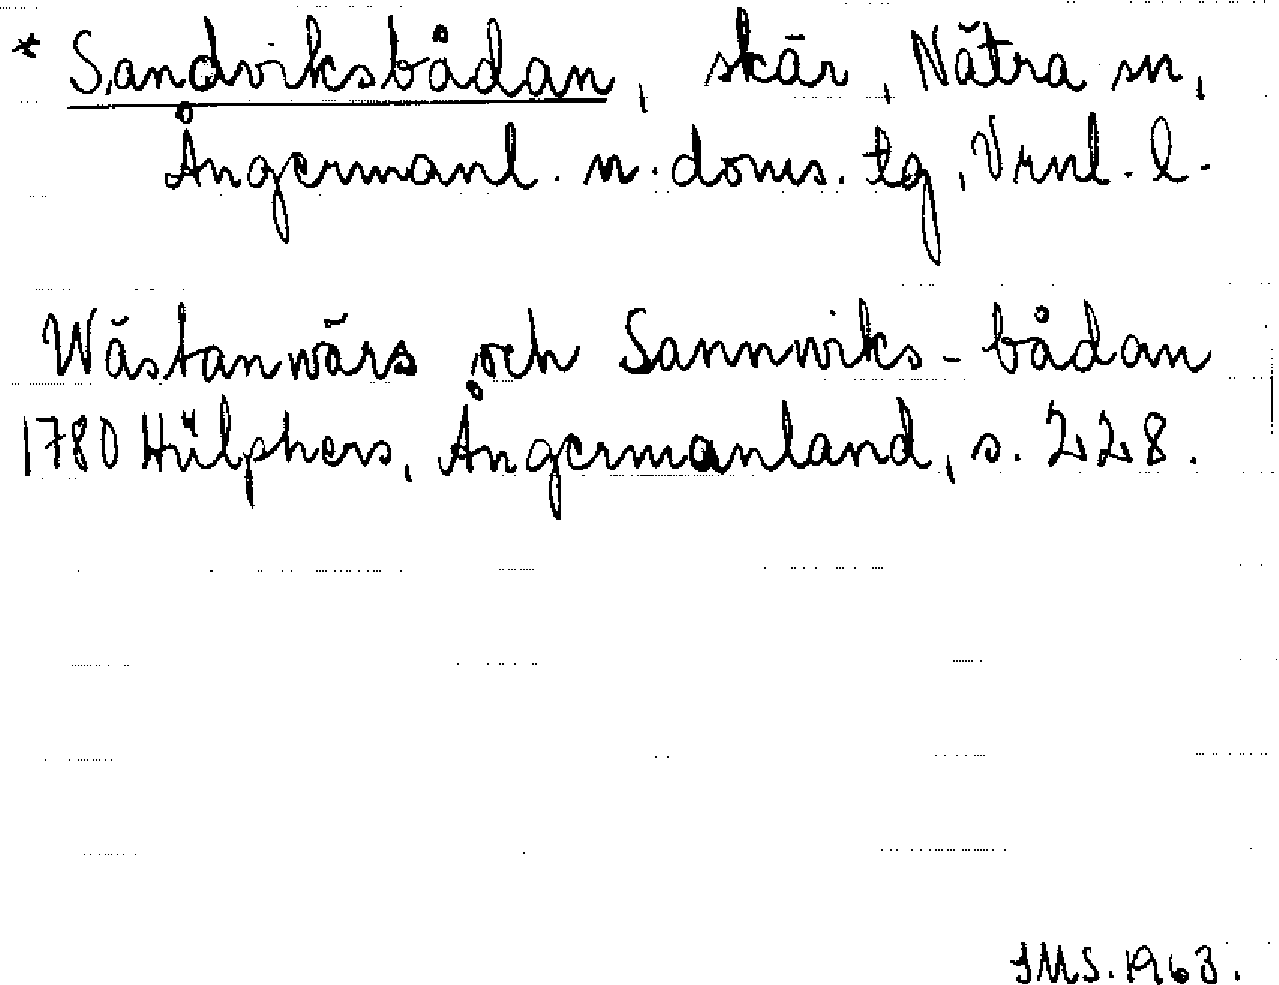 * Sandviksbådan, skär, Nätra sn,
Ångermanl. n. doms. tg, Vrnl. l.
Wästanwärs och Sannwiks-bådan
1780 Hülphers, Ångermanland, s. 228.
JMS. 1963.